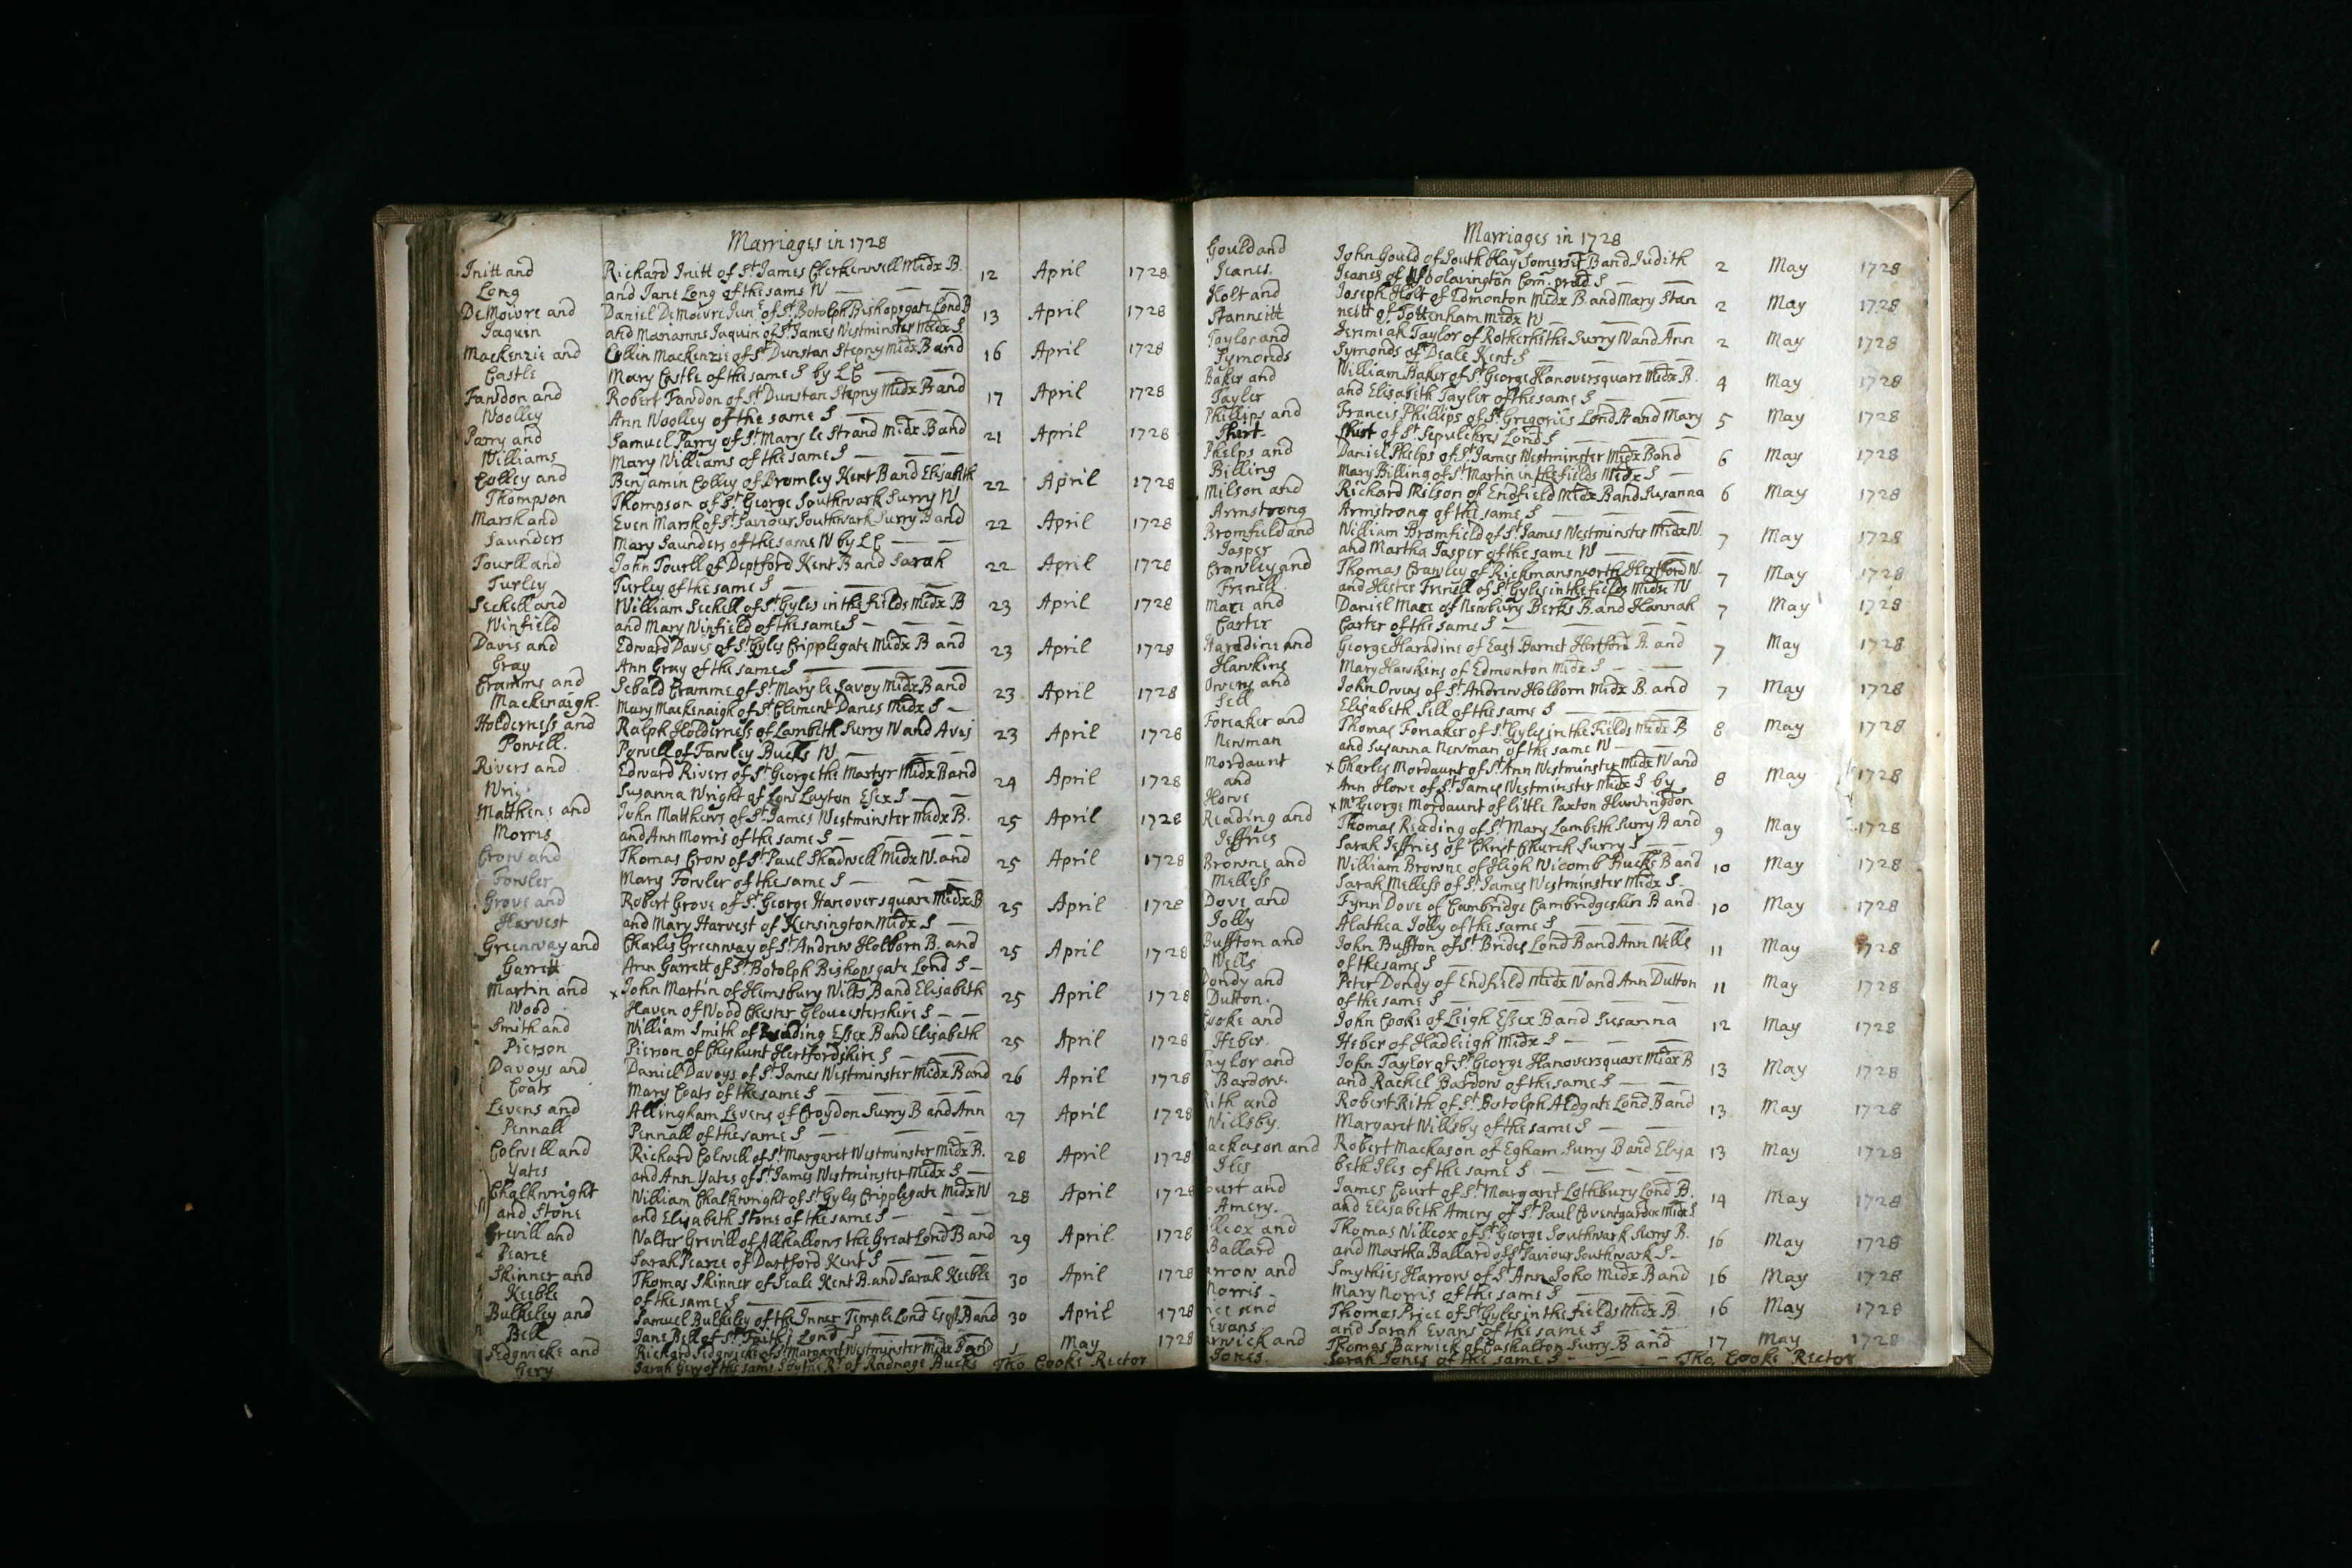 Marriages in 1728
Initt and Richard Initt of St James Clerkenwell Midx B. 12 April 1728
Long and Jane Long of the same W
DeMoivre and Daniel DeMoivre Junr of St Botolph Bishopsgate Lond B 13 April 1728
Jaquin and Marianne Jaquin of St James Westminster Midx S
Mackenzie and Collin Mackenzie of St Dunstan Stepny Midx B and 16 April 1728
Castle Mary Castle of the same S by LC
Fawdon and Robert Fawdon of St Dunstan Stepny Midx B and 17 April 1728
Woolley Ann Woolley of the same S
Parry and Samuel Parry of St Mary le Strand Midx B and 21 April 1728
Williams Mary Williams of the same S
Colley and Benjamin Colley of Bromley Kent B and Elisabeth 22 April 1728
Thompson Thompson of St George Southwark Surry W
Marsh and Even Marsh of St Saviour Southwark Surry B and 22 April 1728
Saunders Mary Saunders of the same W by LC
Tourll and John Tourll of Deptford Kent B and Sarah 22 April 1728
Turley Turley of the same S
Seckell and William Seckell of St Gyles in the fields Midx B 23 April 1728
Winfield and Mary Winfield of the same S
Davis and Edward Davis of St Gyles Cripplegate Midx B and 23 April 1728
Gray Ann Gray of the same S
Cramme and Sebald Cramme of St Mary le Savoy Midx B and 23 April 1728
Mackenaigh. Mary Mackenaigh of St Clement Danes Midx S
Holderness and Ralph Holderness of Lambeth Surry W and Avis 23 April 1728
Powell. Powell of Fawley Bucks W
Rivers and Edward Rivers of St George the Martyr Midx B and 24 April 1728
Wri Susanna Wright of Low Layton Essex S
Matthews and John Matthews of St James Westminster Midx B. 25 April 1728
Morris and Ann Morris of the same S
Crow and Thomas Crow of St Paul Shadwell Midx W. and 25 April 1728
Fowler Mary Fowler of the same S
Grove and Robert Grove of St George Hanover square Midx B 25 April 1728
Harvest and Mary Harvest of Kensington Midx S
Greenway and Charles Greenway of St Andrew Holborn B. and 25 April 1728
Garrett Ann Garrett of St Botolph Bishopsgate Lond S
Martin and x John Martin of Hemsbury Wilts B and Elisabeth 25 April 1728
Wood Haven of Wood Chester Gloucestershire S
Smith and William Smith of Reading Essex B and Elisabeth 25 April 1728
Pierson Pierson of Cheshunt Hertfordshire S
Davoys and Daniel Davoys of St James Westminster Midx B and 26 April 1728
Coats Mary Coats of the same S
Levens and Allingham Levens of Croydon Surry B and Ann 27 April 1728
Pennall Pennall of the same S
Colwell and Richard Colwell of St Margaret Westminster Midx B. 28 April 1728
Yates and Ann Yates of St James Westminster Midx S
Chalkwright William Chalkwright of St Gyles Cripplegate Midx W 28 April 1728
and Stone and Elisabeth Stone of the same S
Grevill and Walter Grevill of Allhallows the Great Lond B and 29 April 1728
Pearce Sarah Pearce of Dartford Kent S
Skinner and Thomas Skinner of Seale Kent B. and Sarah Keeble 30 April 1728
Keeble of the same S
Bulkeley and Samuel Bulkeley of the Inner Temple Lond Esqr. B and 30 April 1728
Bell Jane Bell of St Faiths Lond S
Sedgwicke and Richard Sedgwicke of St Margaret Westminster Midx B and 1 May 1728
Gery Sarah Gery of the same S by the Rr of Radnage Bucks Tho Cooke Rector
Marriages in 1728
Gould and John Gould of South Hay Somerset B and Judith 2 May 1728
Jeanes. Jeanes of Woolavington Com. prad. S
Holt and Joseph Holt of Edmonton Midx B. and Mary Stan 2 May 1728
Stannett nett of Tottenham Midx W
Taylor and Jeremiah Taylor of Rotherhithe Surry W and Ann 2 May 1728
Symonds Symonds of Deale Kent S
Baker and William Baker of St George Hanover square Midx B. 4 May 1728
Tayler and Elisabeth Tayler of the same S
Phillips and Francis Phillips of St Grigories Lond B and Mary 5 May 1728
Shirt. Shirt of St Sepulchres Lond S
Phelps and Daniel Phelps of St James Westminster Midx B and 6 May 1728
Billing Mary Billing of St Martin in the fields Midx S
Milson and Richard Milson of Endfield Midx B and Susanna 6 May 1728
Armstrong Armstrong of the same S
Bromfield and William Bromfield of St James Westminster Midx W. 7 May 1728
Jasper and Martha Jasper of the same W
Crawley and Thomas Crawley of Rickmansworth Hertford W. 7 May 1728
Frenell and Hester Frenell of St Gyles in the fields Midx W
Mace and Daniel Mace of Newbury Berks B. and Hannah 7 May 1728
Carter Carter of the same S
Haradine and George Haradine of East Barnet Hertford B. and 7 May 1728
Hawkins Mary Hawkins of Edmonton Midx S
Owens and John Owens of St Andrew Holborn Midx B. and 7 May 1728
Sell Elisabeth Sell of the same S
Foreaker and Thomas Foreaker of St Gyles in the Fields Midx B 8 May 1728
Newman and Susanna Newman of the same W
Mordaunt x Charles Mordaunt of St Ann Westminster Midx W and
and Ann Howe of St James Westminster Midx S by 8 May 1728
Howe x Mr George Mordaunt of little Paxton Huntingdon
Reading and Thomas Reading of St Mary Lambeth Surry B and 9 May 1728
Jeffries Sarah Jeffries of Christ Church Surry S
Browne and William Browne of High Wicomb Bucks B and 10 May 1728
Melless Sarah Melless of St James Westminster Midx S
Dove and Fynn Dove of Cambridge Cambridgeshire B and 10 May 1728
Jolly Alathea Jolly of the same S
Buffton and John Buffton of St Brides Lond B and Ann Wells 11 May 1728
Wells of the same S
Dondy and Peter Dondy of Endfield Midx W and Ann Dutton 11 May 1728
Dutton. of the same S
Cooke and John Cooke of Leigh Essex B and Susanna 12 May 1728
Heber. Heber of Hadleigh Midx S
aylor and John Taylor of St George Hanover square Midx B 13 May 1728
Bardow. and Rachel Bardow of the same S
Rith and Robert Rith of St Botolph Aldgate Lond. B and 13 May 1728
Willsby. Margaret Willsby of the same S
ackason and Robert Mackason of Egham Surry B and Elisa 13 May 1728
Iles beth Iles of the same S
ourt and James Court of St Margaret Lothbury Lond B. 14 May 1728
Amery. and Elisabeth Amery of St Paul Coventgarden Midx S
llcox and Thomas Willcox of St George Southwark Surry B. 16 May 1728
Ballard and Martha Ballard of St Saviour Southwark S
arrow and Smythies Harrow of St Ann Soho Midx B and 16 May 1728
Norris Mary Norris of the same S
ice and Thomas Price of St Gyles in the fields Midx B. 16 May 1728
Evans and Sarah Evans of the same S
arwick and Thomas Barwick of Cashalton Surry B and 17 May 1728
Jones. Sarah Jones of the same S Tho. Cooke Rector